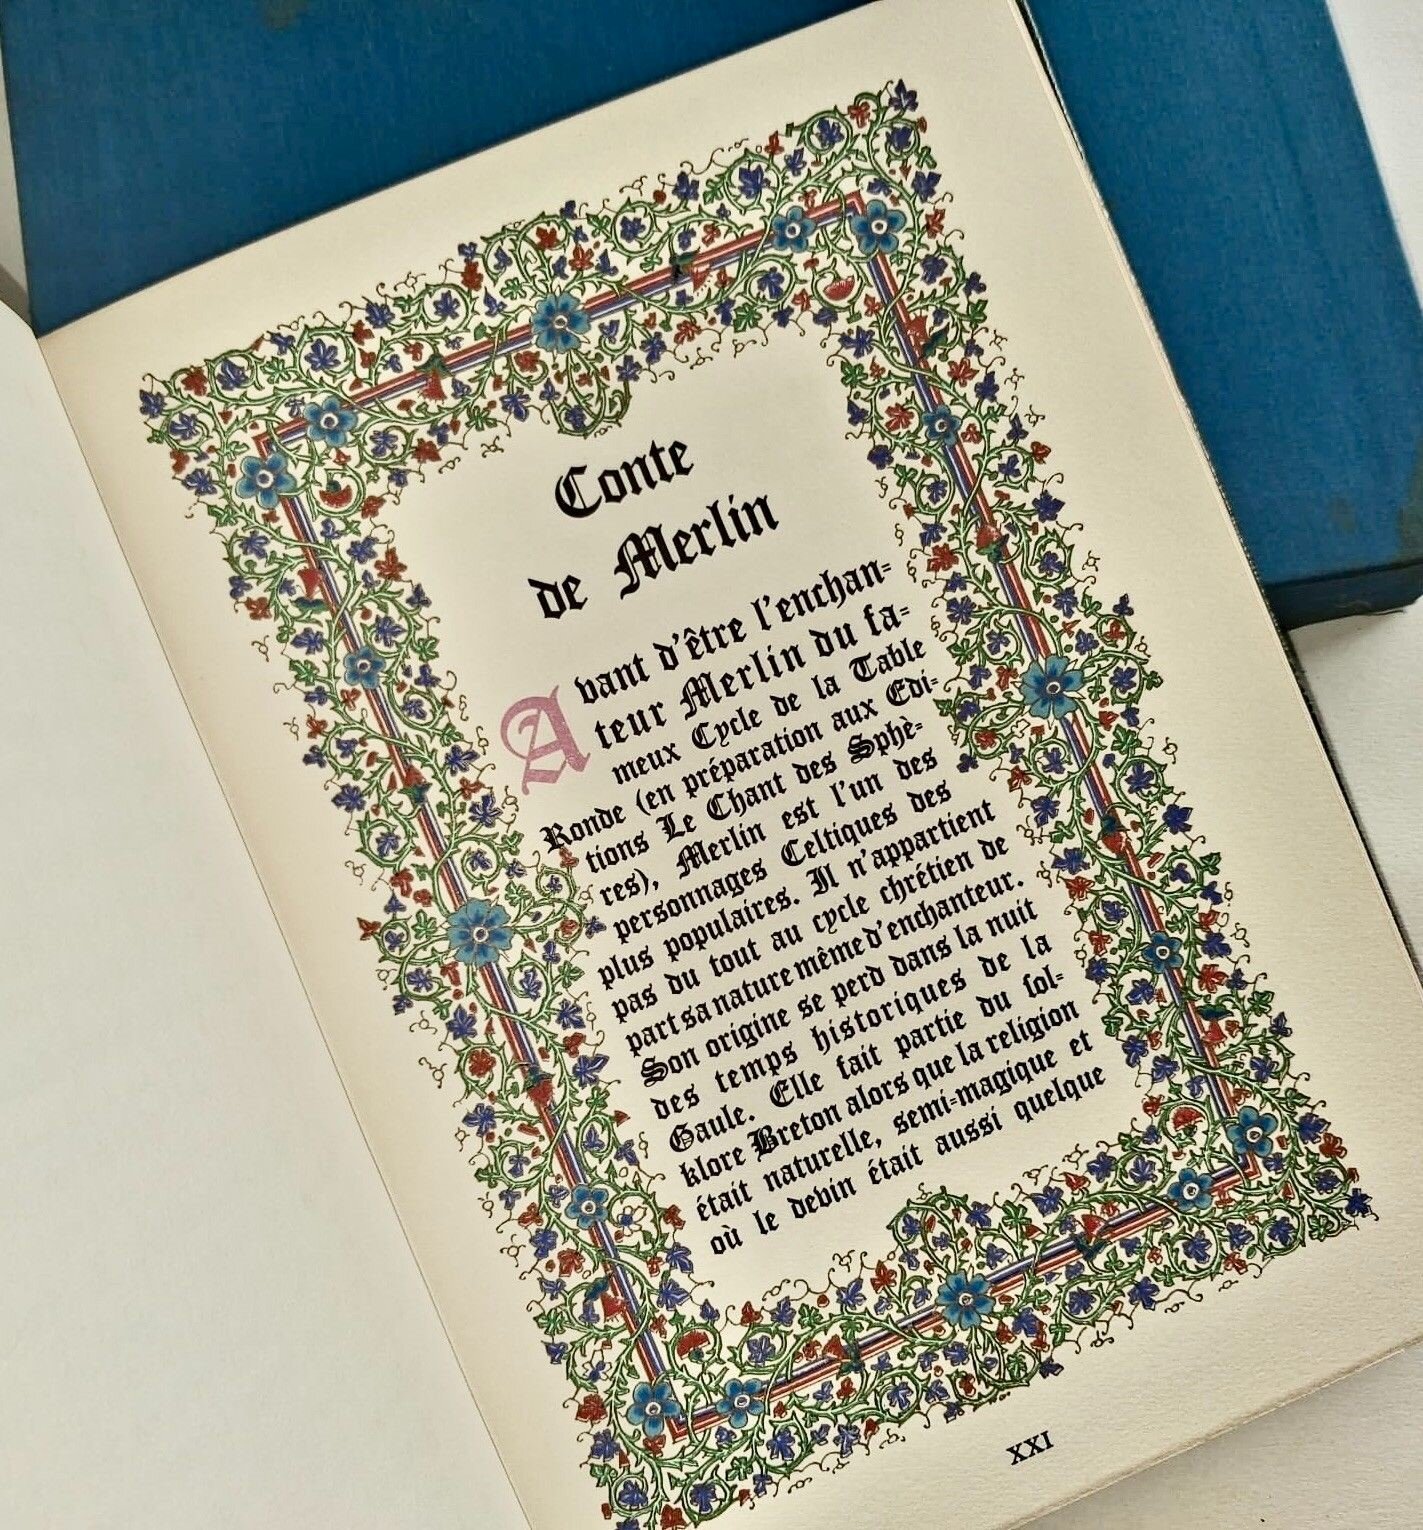 Conte
de Merlin
Avant d'être l'enchan=
teur Merlin du fa=
meux Cycle de la Table
Ronde (en préparation aux Edi=
tions Le Chant des Sphè=
res), Merlin est l'un des
personnages Celtiques des
plus populaires. Il n'appartient
pas du tout au cycle chrétien de
part sa nature même d'enchanteur.
Son origine se perd dans la nuit
des temps historiques de la
Gaule. Elle fait partie du fol=
klore Breton alors que la religion
était naturelle, semi=magique et
où le devin était aussi quelque
XXI